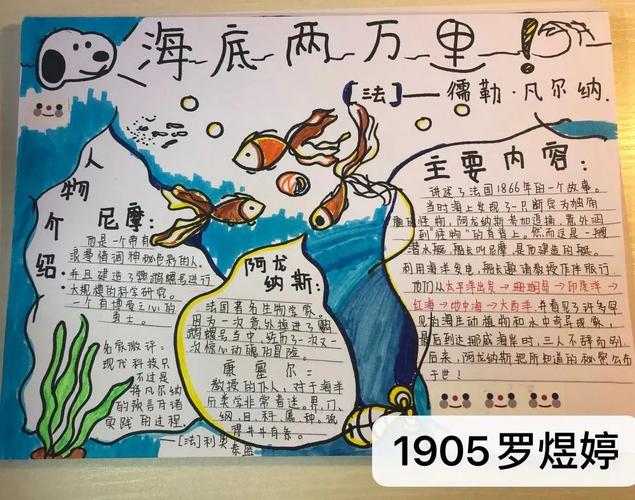 海底两万里!
[法]——儒勒·凡尔纳.
人物介绍:
尼摩:
而是一个带有
浪漫情调神秘色彩的人.
并且建造了鹦鹉螺号进行
大规模的科学研究。
一个有博爱之心的
勇士。
名家微评:
现代科技只
不过是
将凡尔纳
的预言付诸
实践的过程.
—[法]利奥
泰
阿龙
纳斯:
法国著名生物学家.
因为一次意外掉进了鹦
鹉螺号当中,经历了一次又一
次惊心动魄的冒险。
康塞尔:
教授的仆人,对于海洋
分类学非常着迷。界、门、
纲、目、科、属、种。说
得井井有条。
主要内容:
讲述了法国1866年的一个故事。
当时海上发现了一只断定为独角
的怪物,阿龙纳斯参加追捕,意外遇
到"怪物"的脊背上。然而这是一艘
潜水艇,艇长叫尼摩,是他建造的艇。
利用海洋发电,艇长邀请教授作伴旅行,
他们从太平洋出发→珊瑚岛→印度洋→
红海→地中海→大西洋,并看见了许多罕
见的海生动植物和水中奇异现象,
最后到达挪威海岸时,三人不辞而别,
后来,阿龙纳斯把所知道的秘密公布
于世!
1905罗煜婷